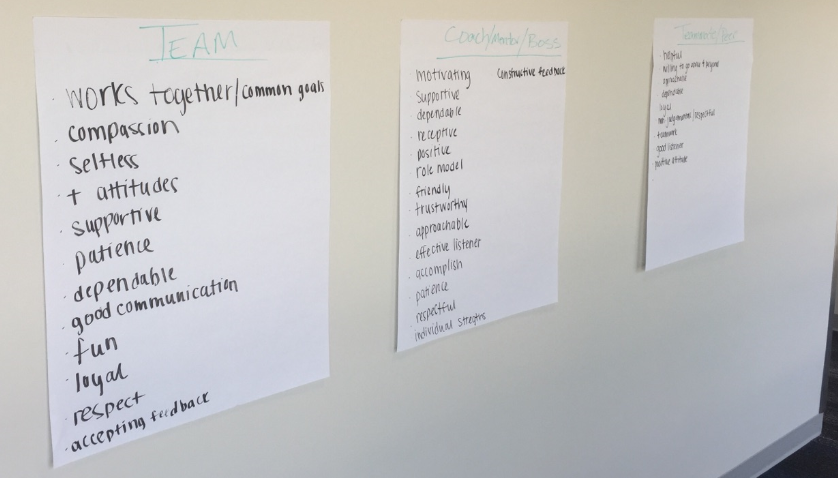 TEAM
· works together/common goals
· compassion
· selfless
· + attitudes
· supportive
· patience
· dependable
· good communication
· fun
· loyal
· respect
· accepting feedback
Coach/Mentor/Boss
· motivating
· supportive
· dependable
· receptive
· positive
· role model
· friendly
· trustworthy
· approachable
· effective listener
· accomplish
· patience
· respectful
individual
constructive feedback
helpful
willing to go above + beyond
dependable
loyal
teamwork
good listener
positive attitude